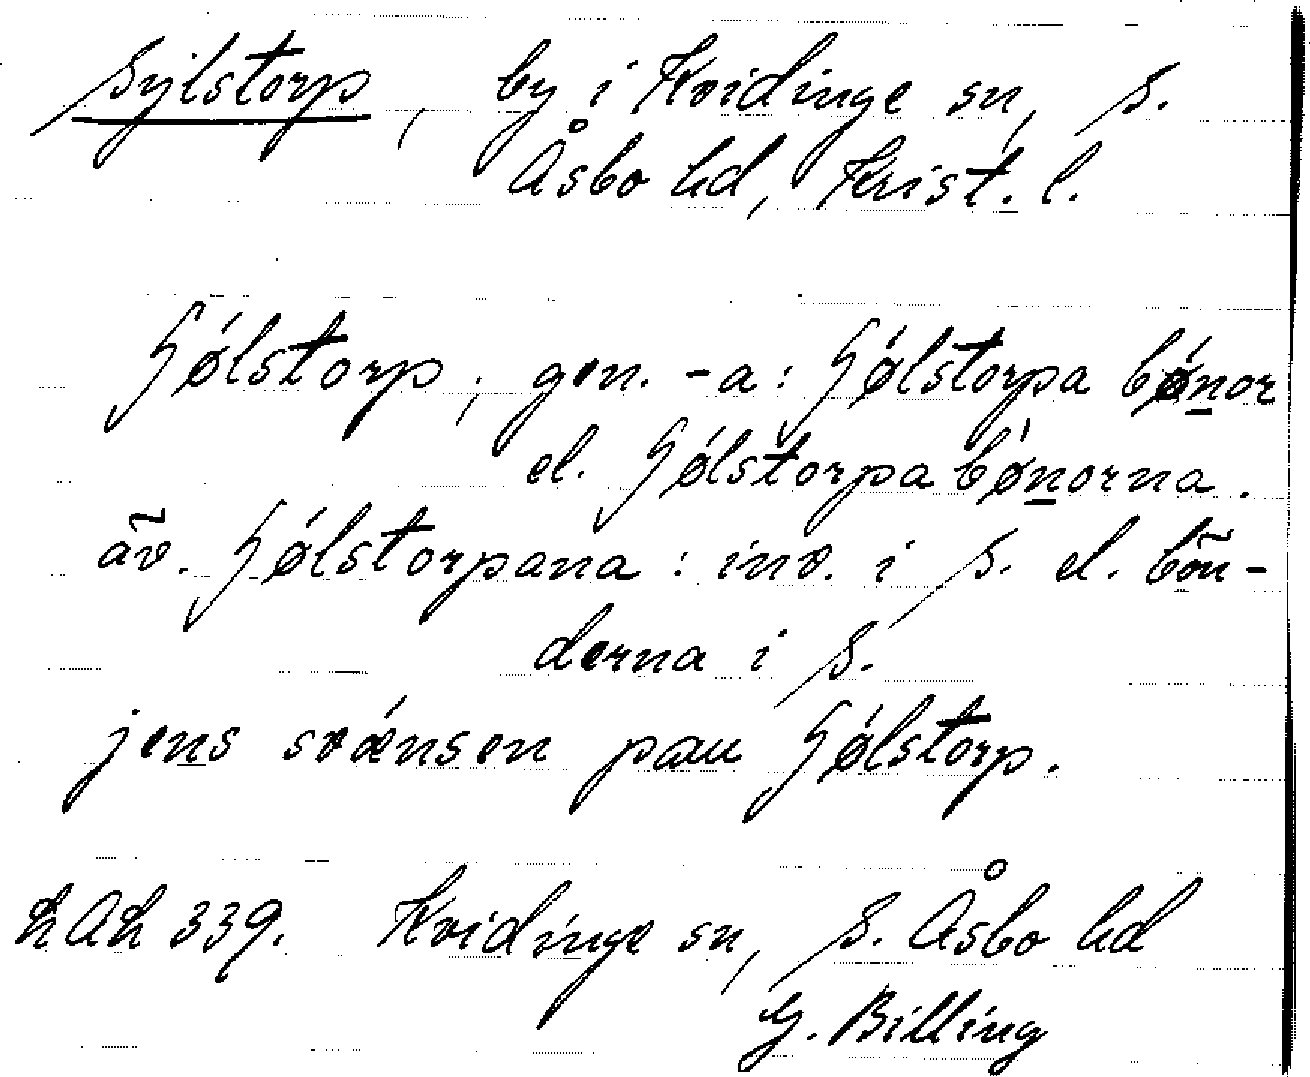 Sylstorp, by i Kvidinge sn, S.
Åsbo hd, Krist. l.
Sǿlstorp, gen. -a: Sǿlstorpa bǿnor
el. Sǿlstorpa bǿnorna.
äv. Sǿlstorpana: inv. i S. el. bön-
derna i S.
jens svǽnsen pau Sǿlstorp.
LAL 339. Kvidinge sn, S. Åsbo hd
G. Billing